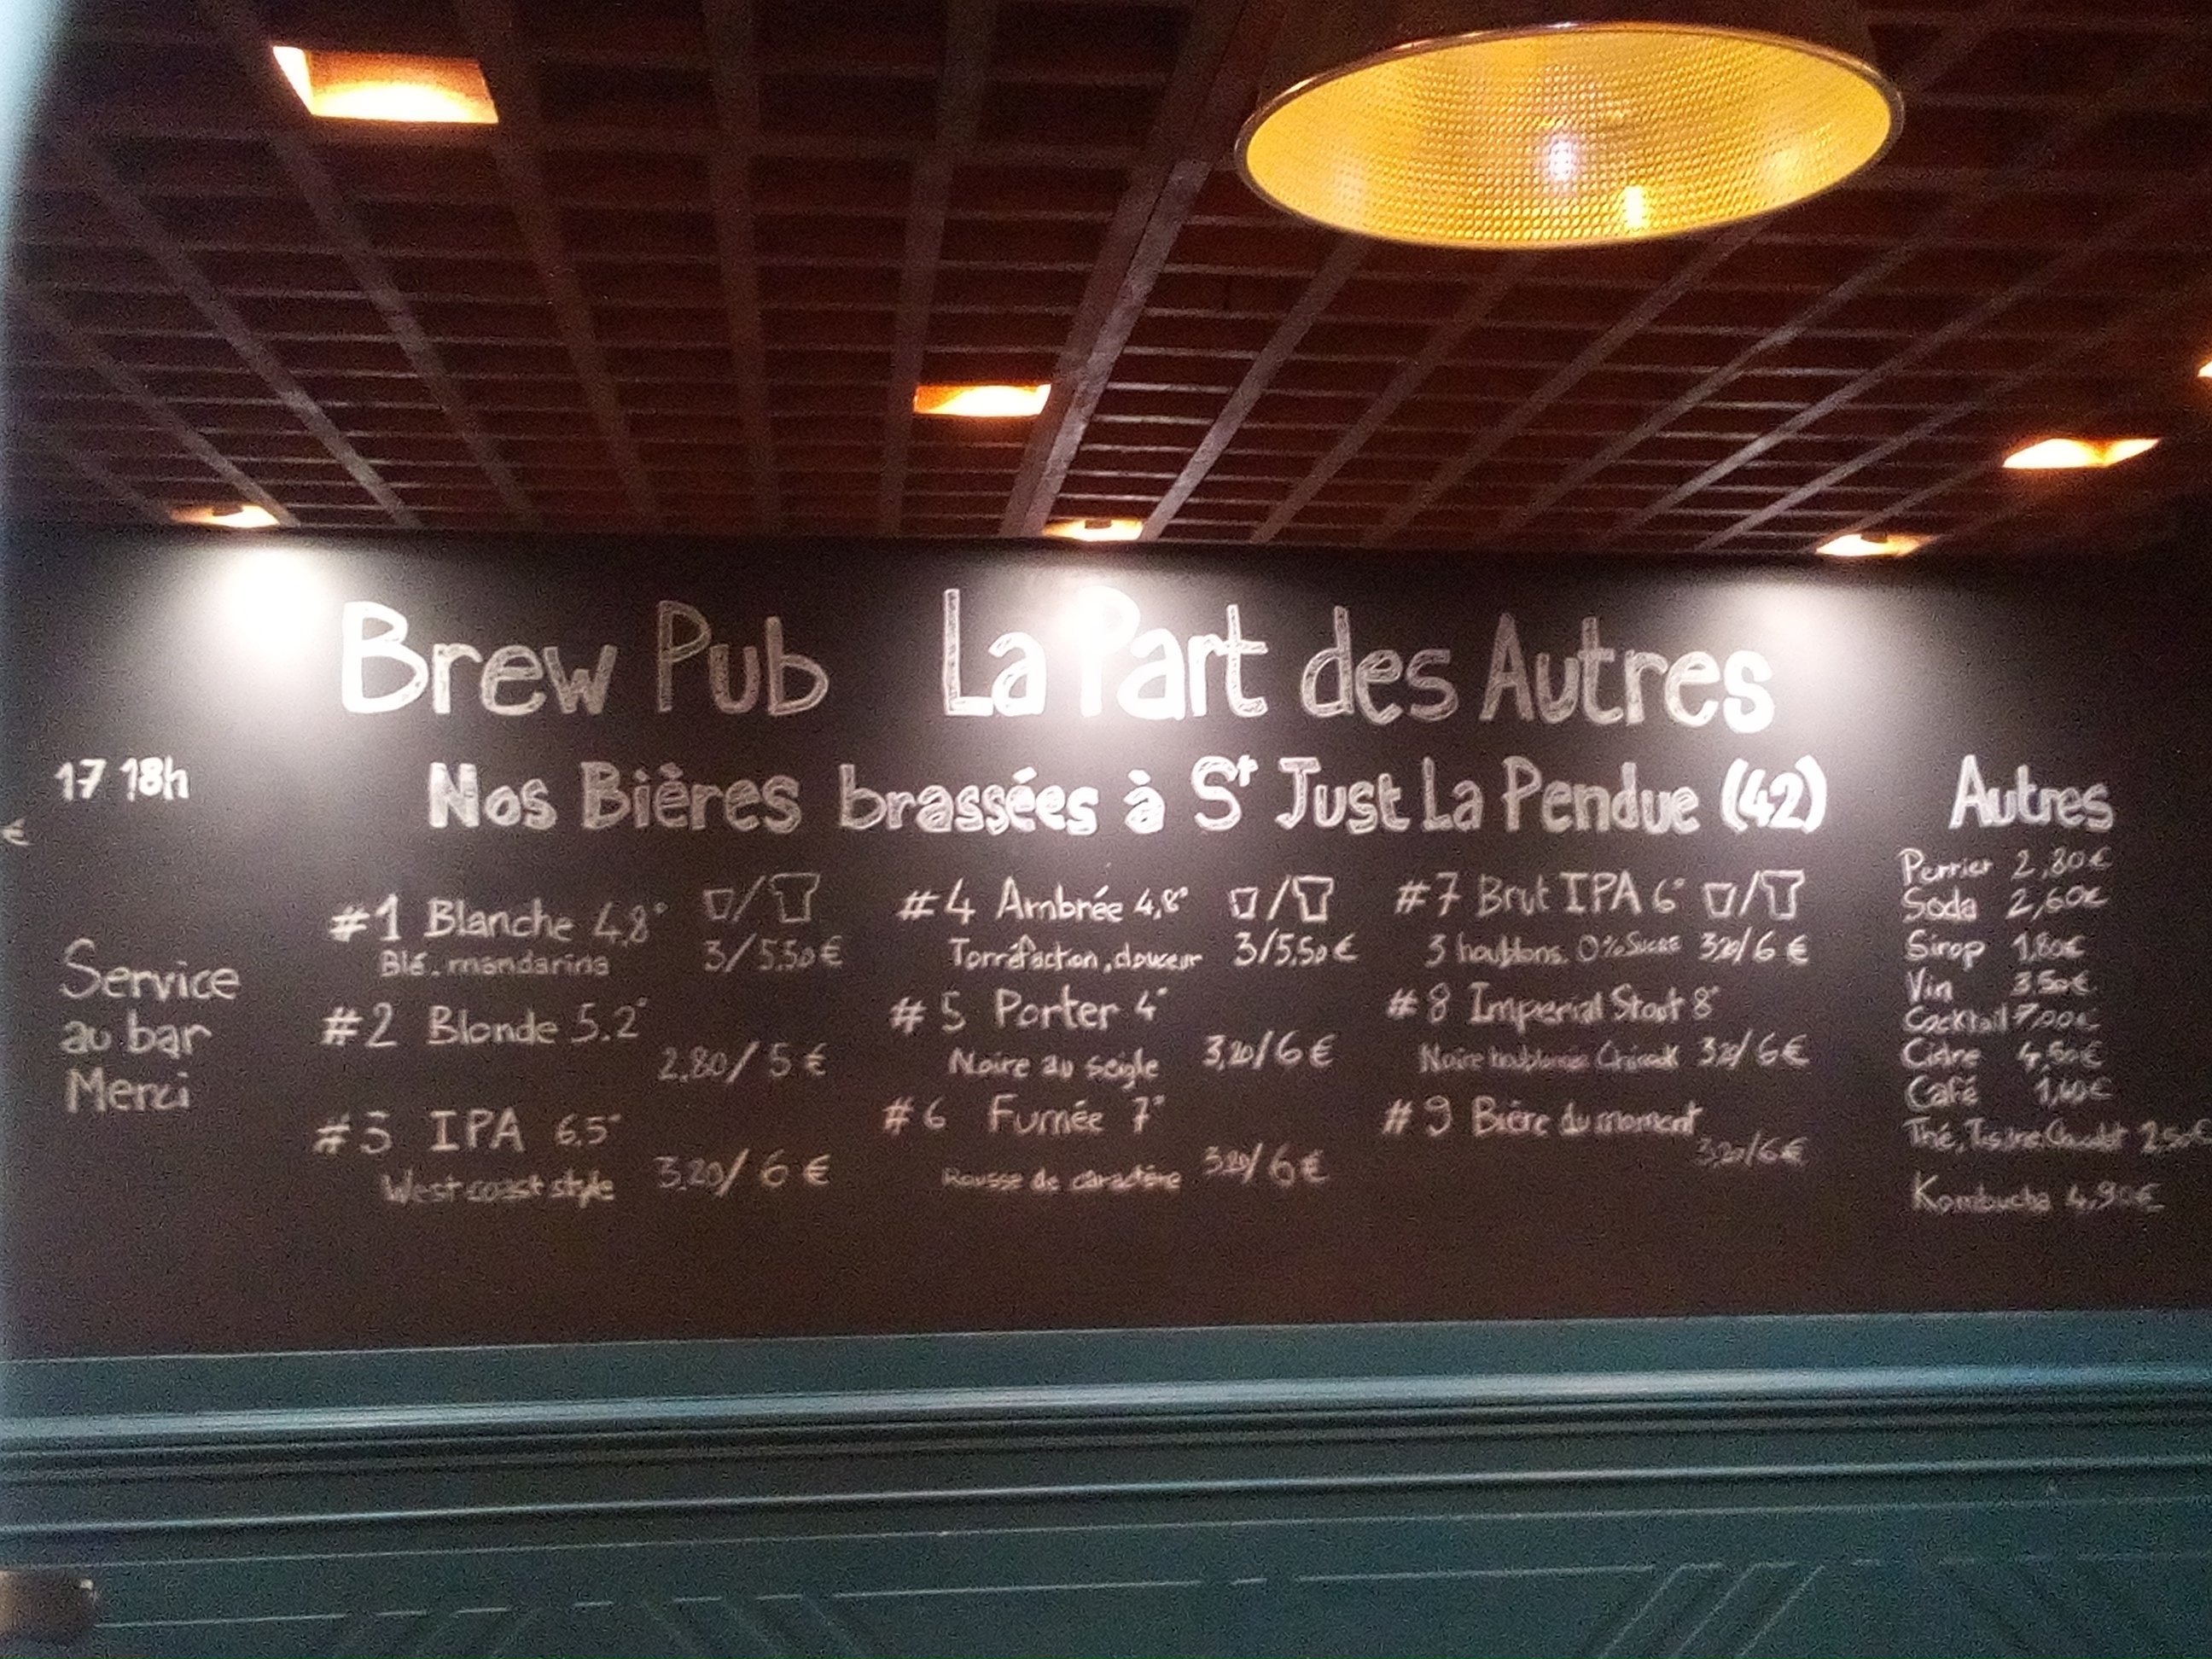 Brew Pub La Part des Autres
17 18h
€
Nos Bières brassées à St Just La Pendue (42)
Service
au bar
Merci
#1 Blanche 4,8°
Blé. mandarina 3/5,50€
#2 Blonde 5.2°
2,80/5€
#3 IPA 6,5°
West coast style 3,20/6€
#4 Ambrée 4,8°
Torréfaction, douceur 3/5,50€
#5 Porter 4°
Noire au seigle 3,20/6€
#6 Fumée 7°
Rousse de caractère 3,20/6€
#7 Brut IPA 6°
3 houblons. 0% Sucre 3,20/6€
#8 Imperial Stout 8°
Noire houblonnée Chinook 3,20/6€
#9 Bière du moment
3,20/6€
Autres
Perrier 2,80€
Soda 2,60€
Sirop 1,80€
Vin 3,50€
Cocktail 7,00€
Cidre 4,50€
Café 1,40€
Thé, Tisane, Chocolat 2,50€
Kombucha 4,90€